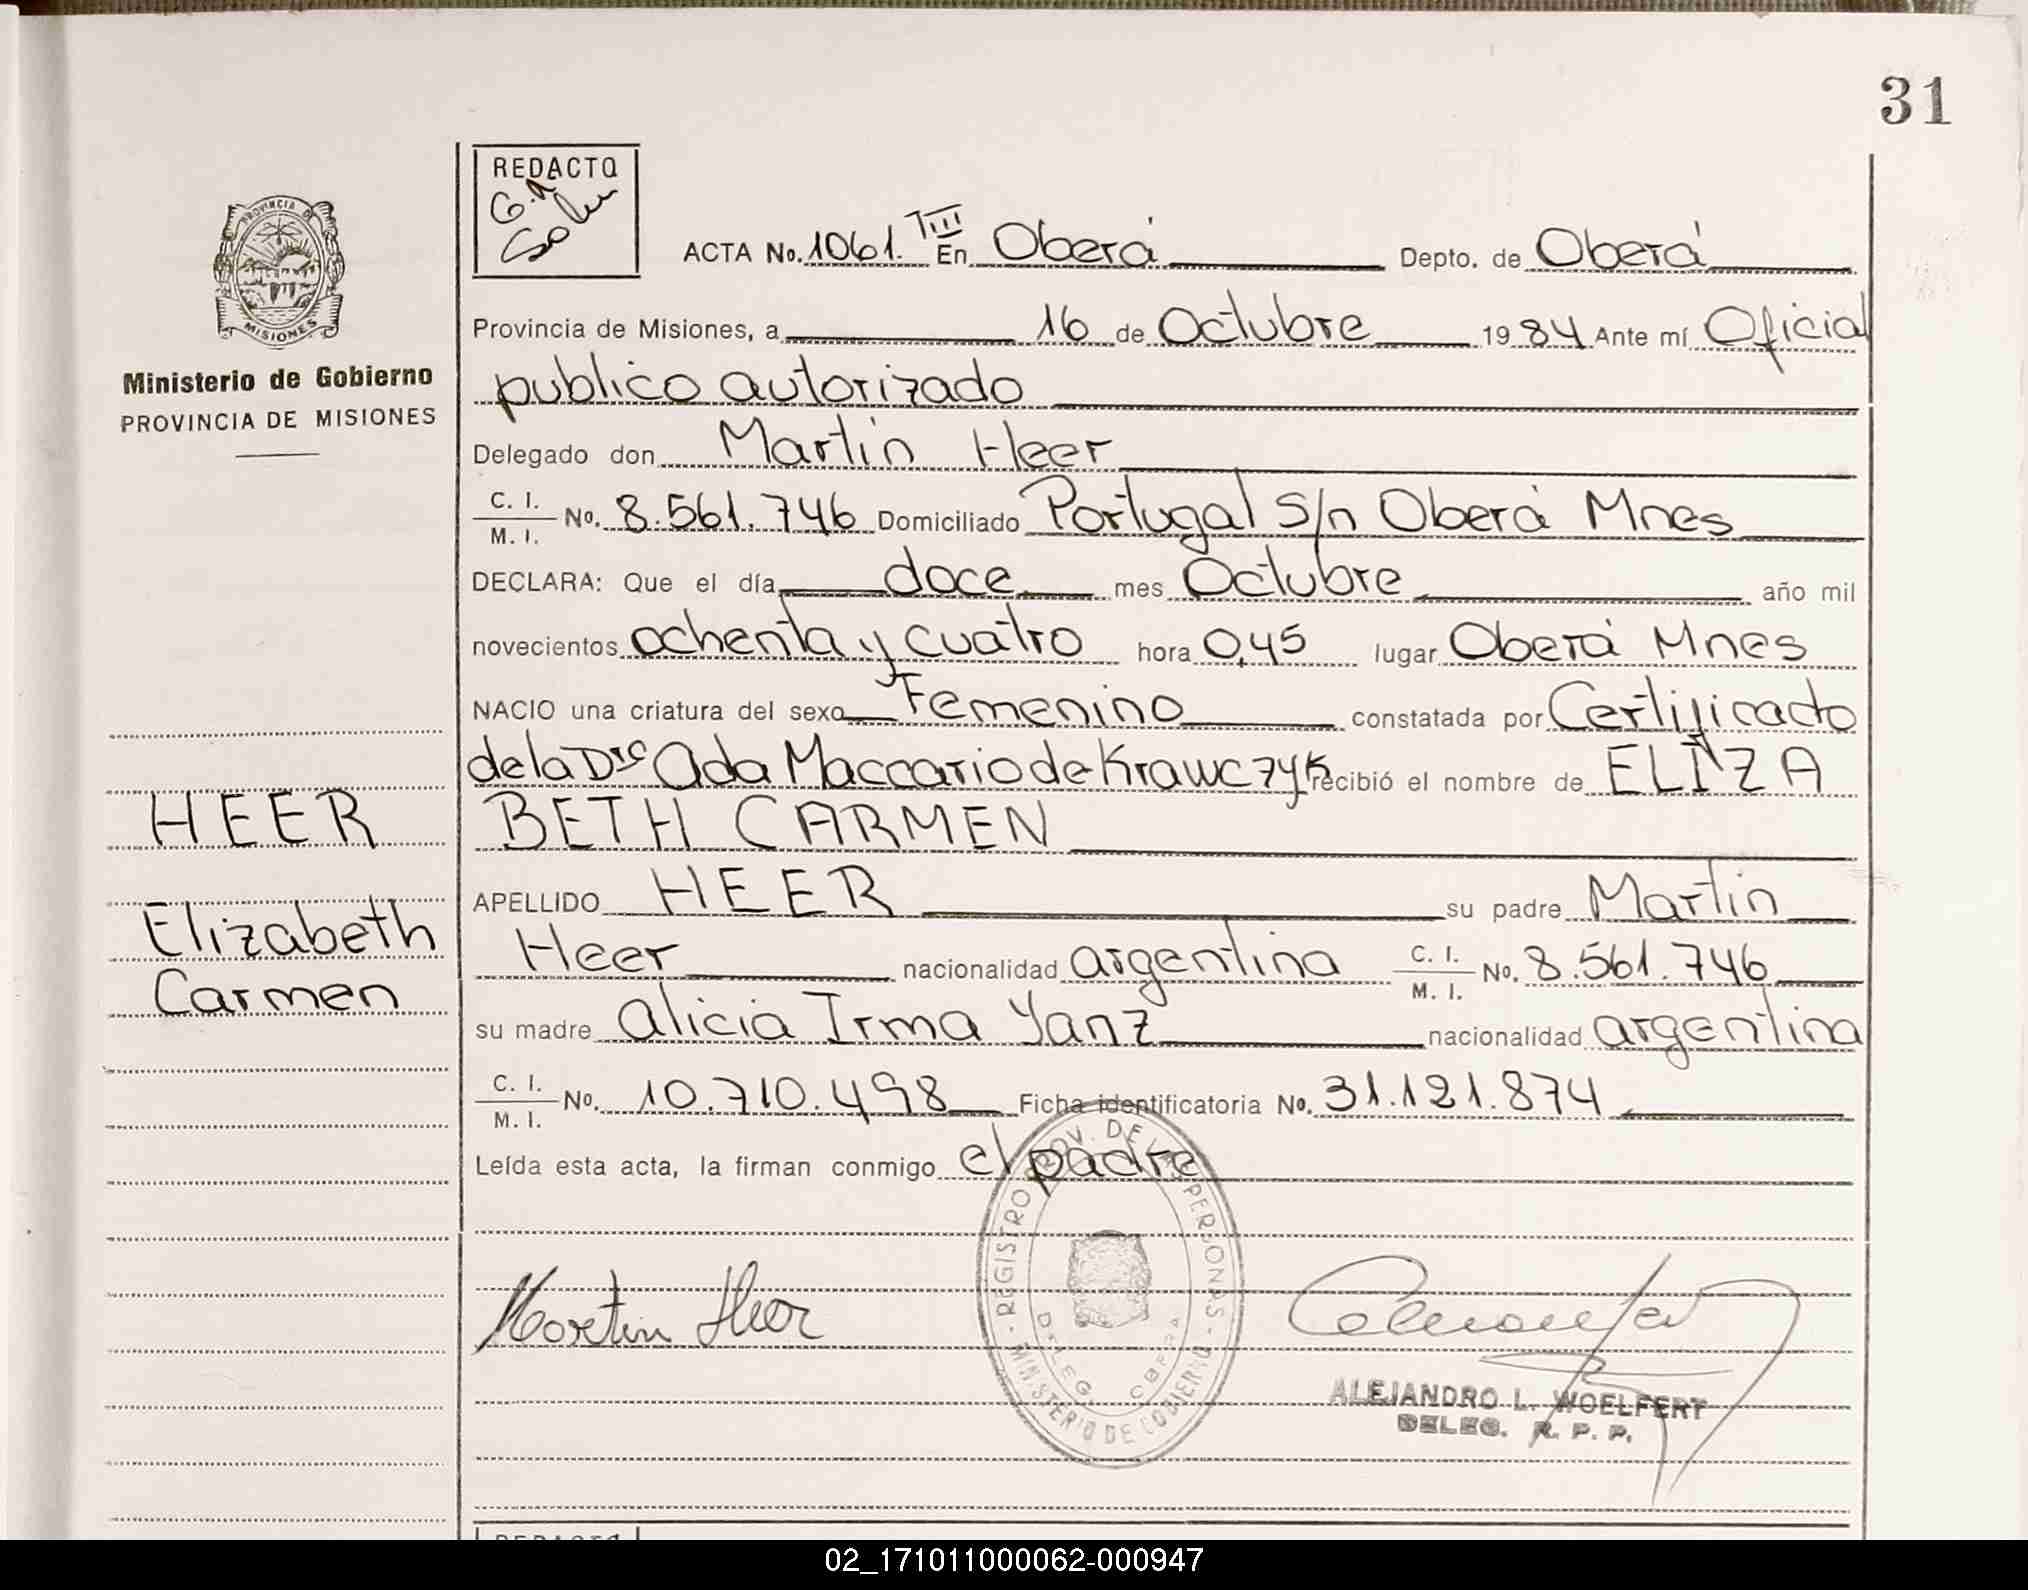 31
REDACTO
PROVINCIA DE
MISIONES
ACTA No. 1061. TIII En Oberá Depto. de Oberá
Provincia de Misiones, a 16 de Octubre 1984 Ante mí Oficial
Ministerio de Gobierno
PROVINCIA DE MISIONES
publico autorizado
Delegado don Martin Heer
C. I.
M. I. No. 8.561.746 Domiciliado Portugal S/n Oberá Mnes
DECLARA: Que el día doce mes Octubre año mil
novecientos ochenta y cuatro hora 0,45 lugar Oberá Mnes
NACIO una criatura del sexo Femenino constatada por Certificado
de la Dra Ada Maccario de Krawczyk recibió el nombre de ELIZA
HEER
BETH CARMEN
APELLIDO HEER su padre Martin
Elizabeth
Carmen
Heer nacionalidad argentina C. I.
M. I. No. 8.561.746
su madre Alicia Irma Yanz nacionalidad argentina
C. I.
M. I. No. 10.710.498 Ficha identificatoria No. 31.121.874
Leída esta acta, la firman conmigo el padre
REGISTRO PROV. DE LAS PERSONAS - MINISTERIO DE GOBIERNO -
DELEG. OBERA
Martin Heer
ALEJANDRO L. WOELFERT
DELEG. R. P. P.
REDACTO
02_171011000062-000947